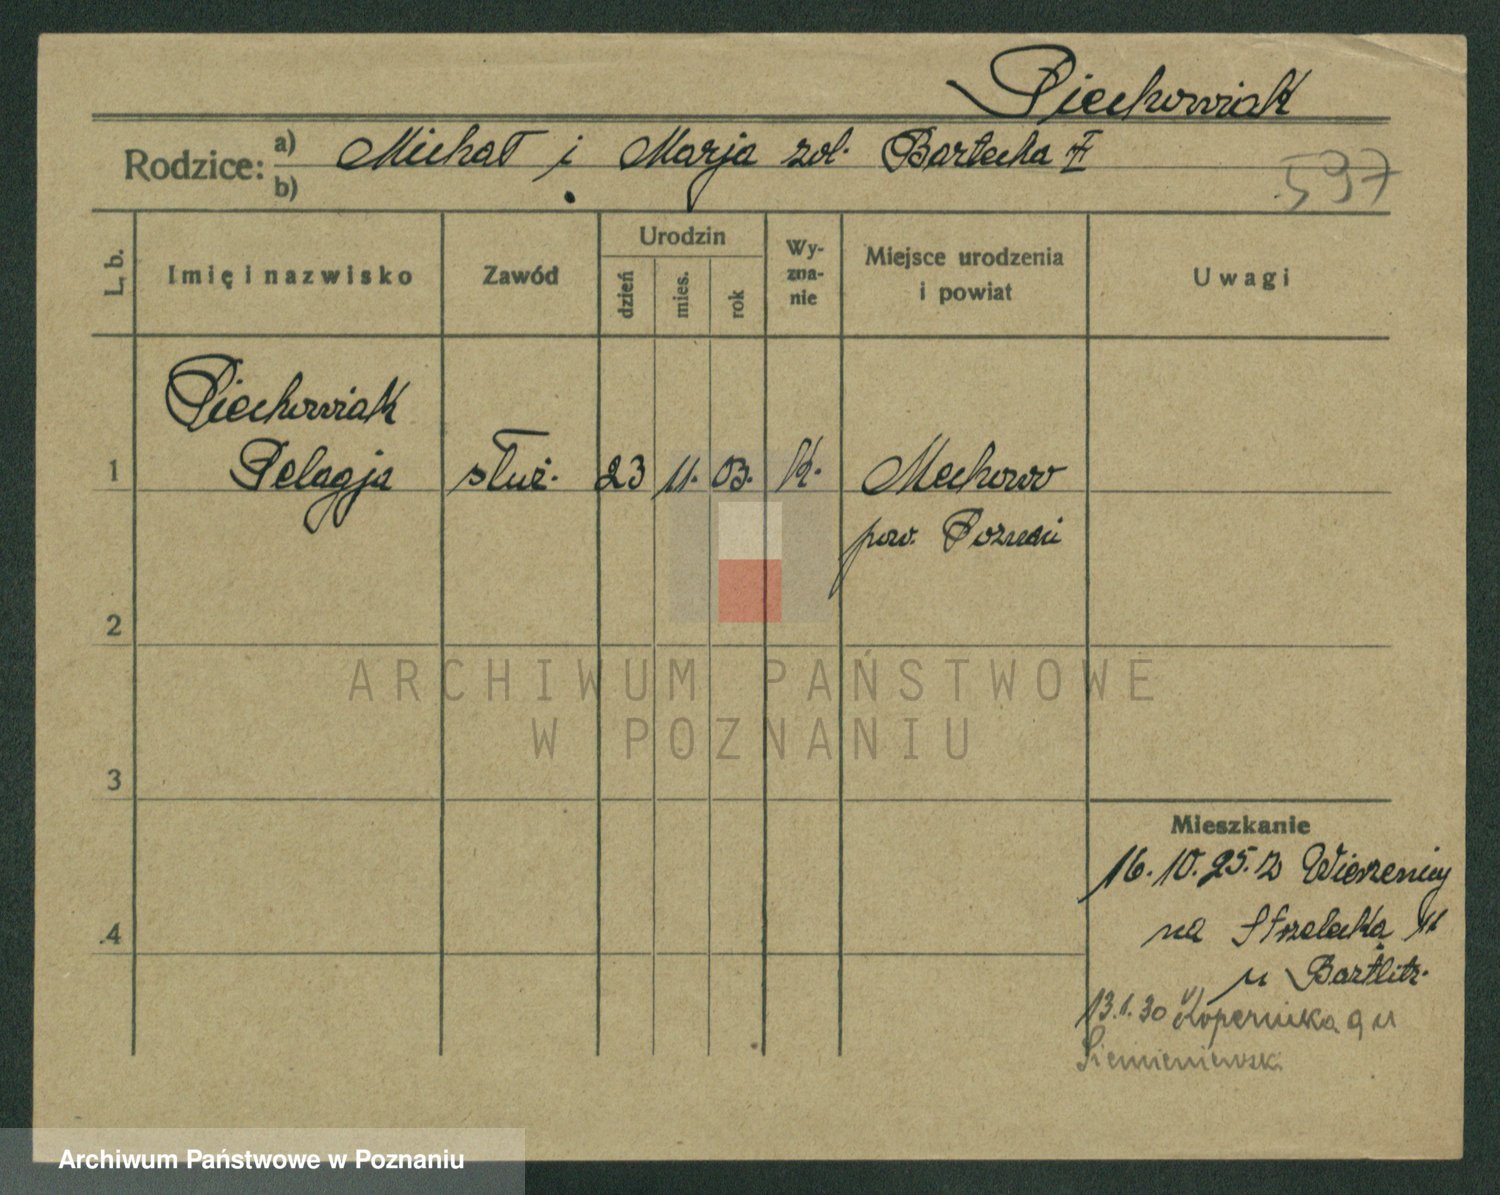 Piechowiak
Rodzice: a) Michał i Marja zd. Bartecka
b)
597
L. b.
Imię i nazwisko
Zawód
Urodzin
dzień
mies.
rok
Wy-
zna-
nie
Miejsce urodzenia
i powiat
Uwagi
Piechowiak
1 Pelagja służ. 23 11. 03. k. Mechowo
pow. Poznań
2
ARCHIWUM PAŃSTWOWE
W POZNANIU
3
Mieszkanie
16. 10. 25. z Wierzenicy
4 na Strzelecka 11
u Bartlitz.
13.1.30 Kopernika 9 u
Siemieniewsk
Archiwum Państwowe w Poznaniu